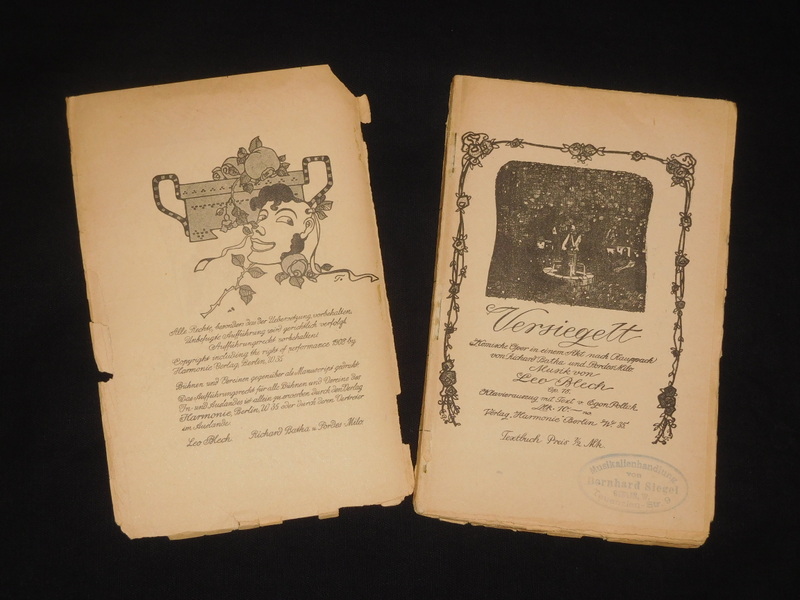 Alle Rechte, besonders das der Uebersetzung, vorbehalten.
Unbefugte Aufführung wird gerichtlich verfolgt.
(Aufführungsrecht vorbehalten)
Copyright including the right of performance 1908 by
Harmonie, Verlag, Berlin, W. 35
Bühnen und Vereinen gegenüber als Manuscript gedruckt.
Das Aufführungsrecht für alle Bühnen und Vereine des
In- und Auslandes ist allein zu erwerben durch den Verlag
Harmonie, Berlin, W 35 oder durch deren Vertreter
im Auslande.
Leo Blech. Richard Batka u. Pordes Milo
Versiegelt
Komische Oper in einem Akt nach Raupach
von Richard Batka und Pordes-Milo
Musik von
Leo Blech
Op. 18.
Klavierauszug mit Text v. Egon Pollak
Mk. 10.— no
Verlag "Harmonie" Berlin W. 35
Textbuch Preis ½ Mk.
Musikalienhandlung
von
Bernhard Siegel